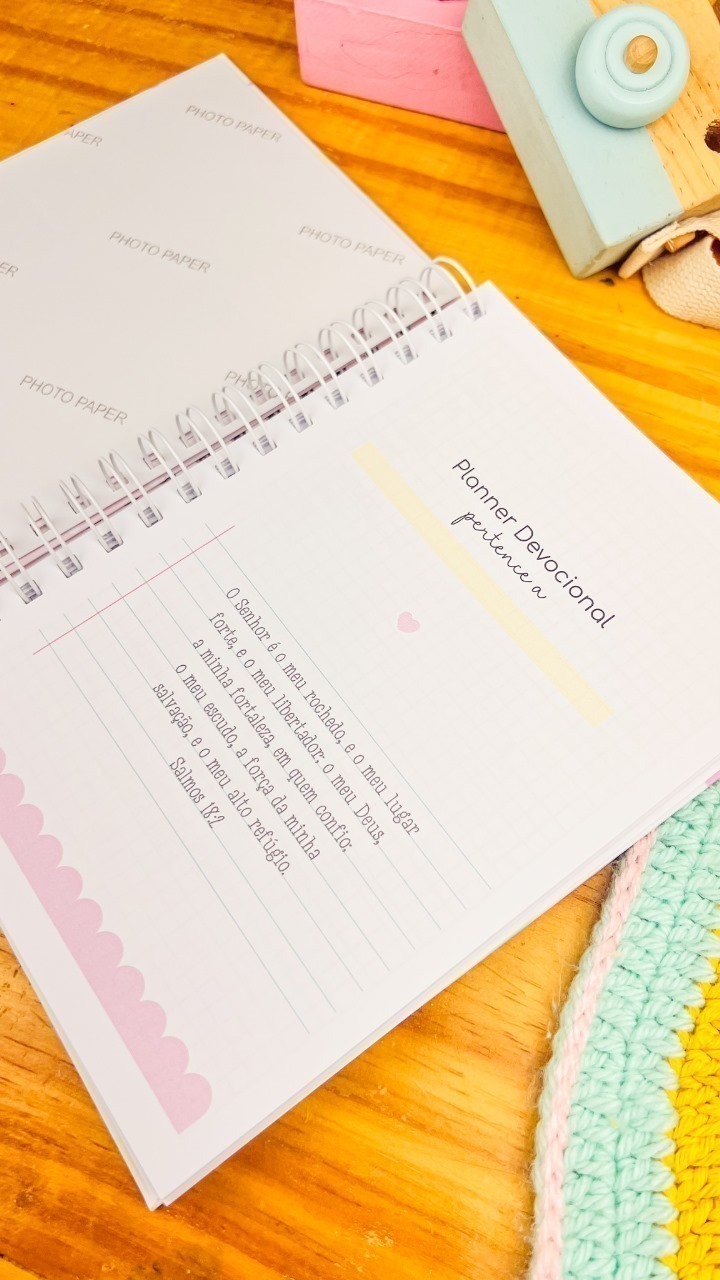 PHOTO PAPER
APER
PHOTO PAPER
PHOTO PAPER
PHOTO PAPER
Planner Devocional
pertence a
O Senhor é o meu rochedo, e o meu lugar
forte, e o meu libertador; o meu Deus,
a minha fortaleza, em quem confio;
o meu escudo, a força da minha
salvação, e o meu alto refúgio.
Salmos 18:2